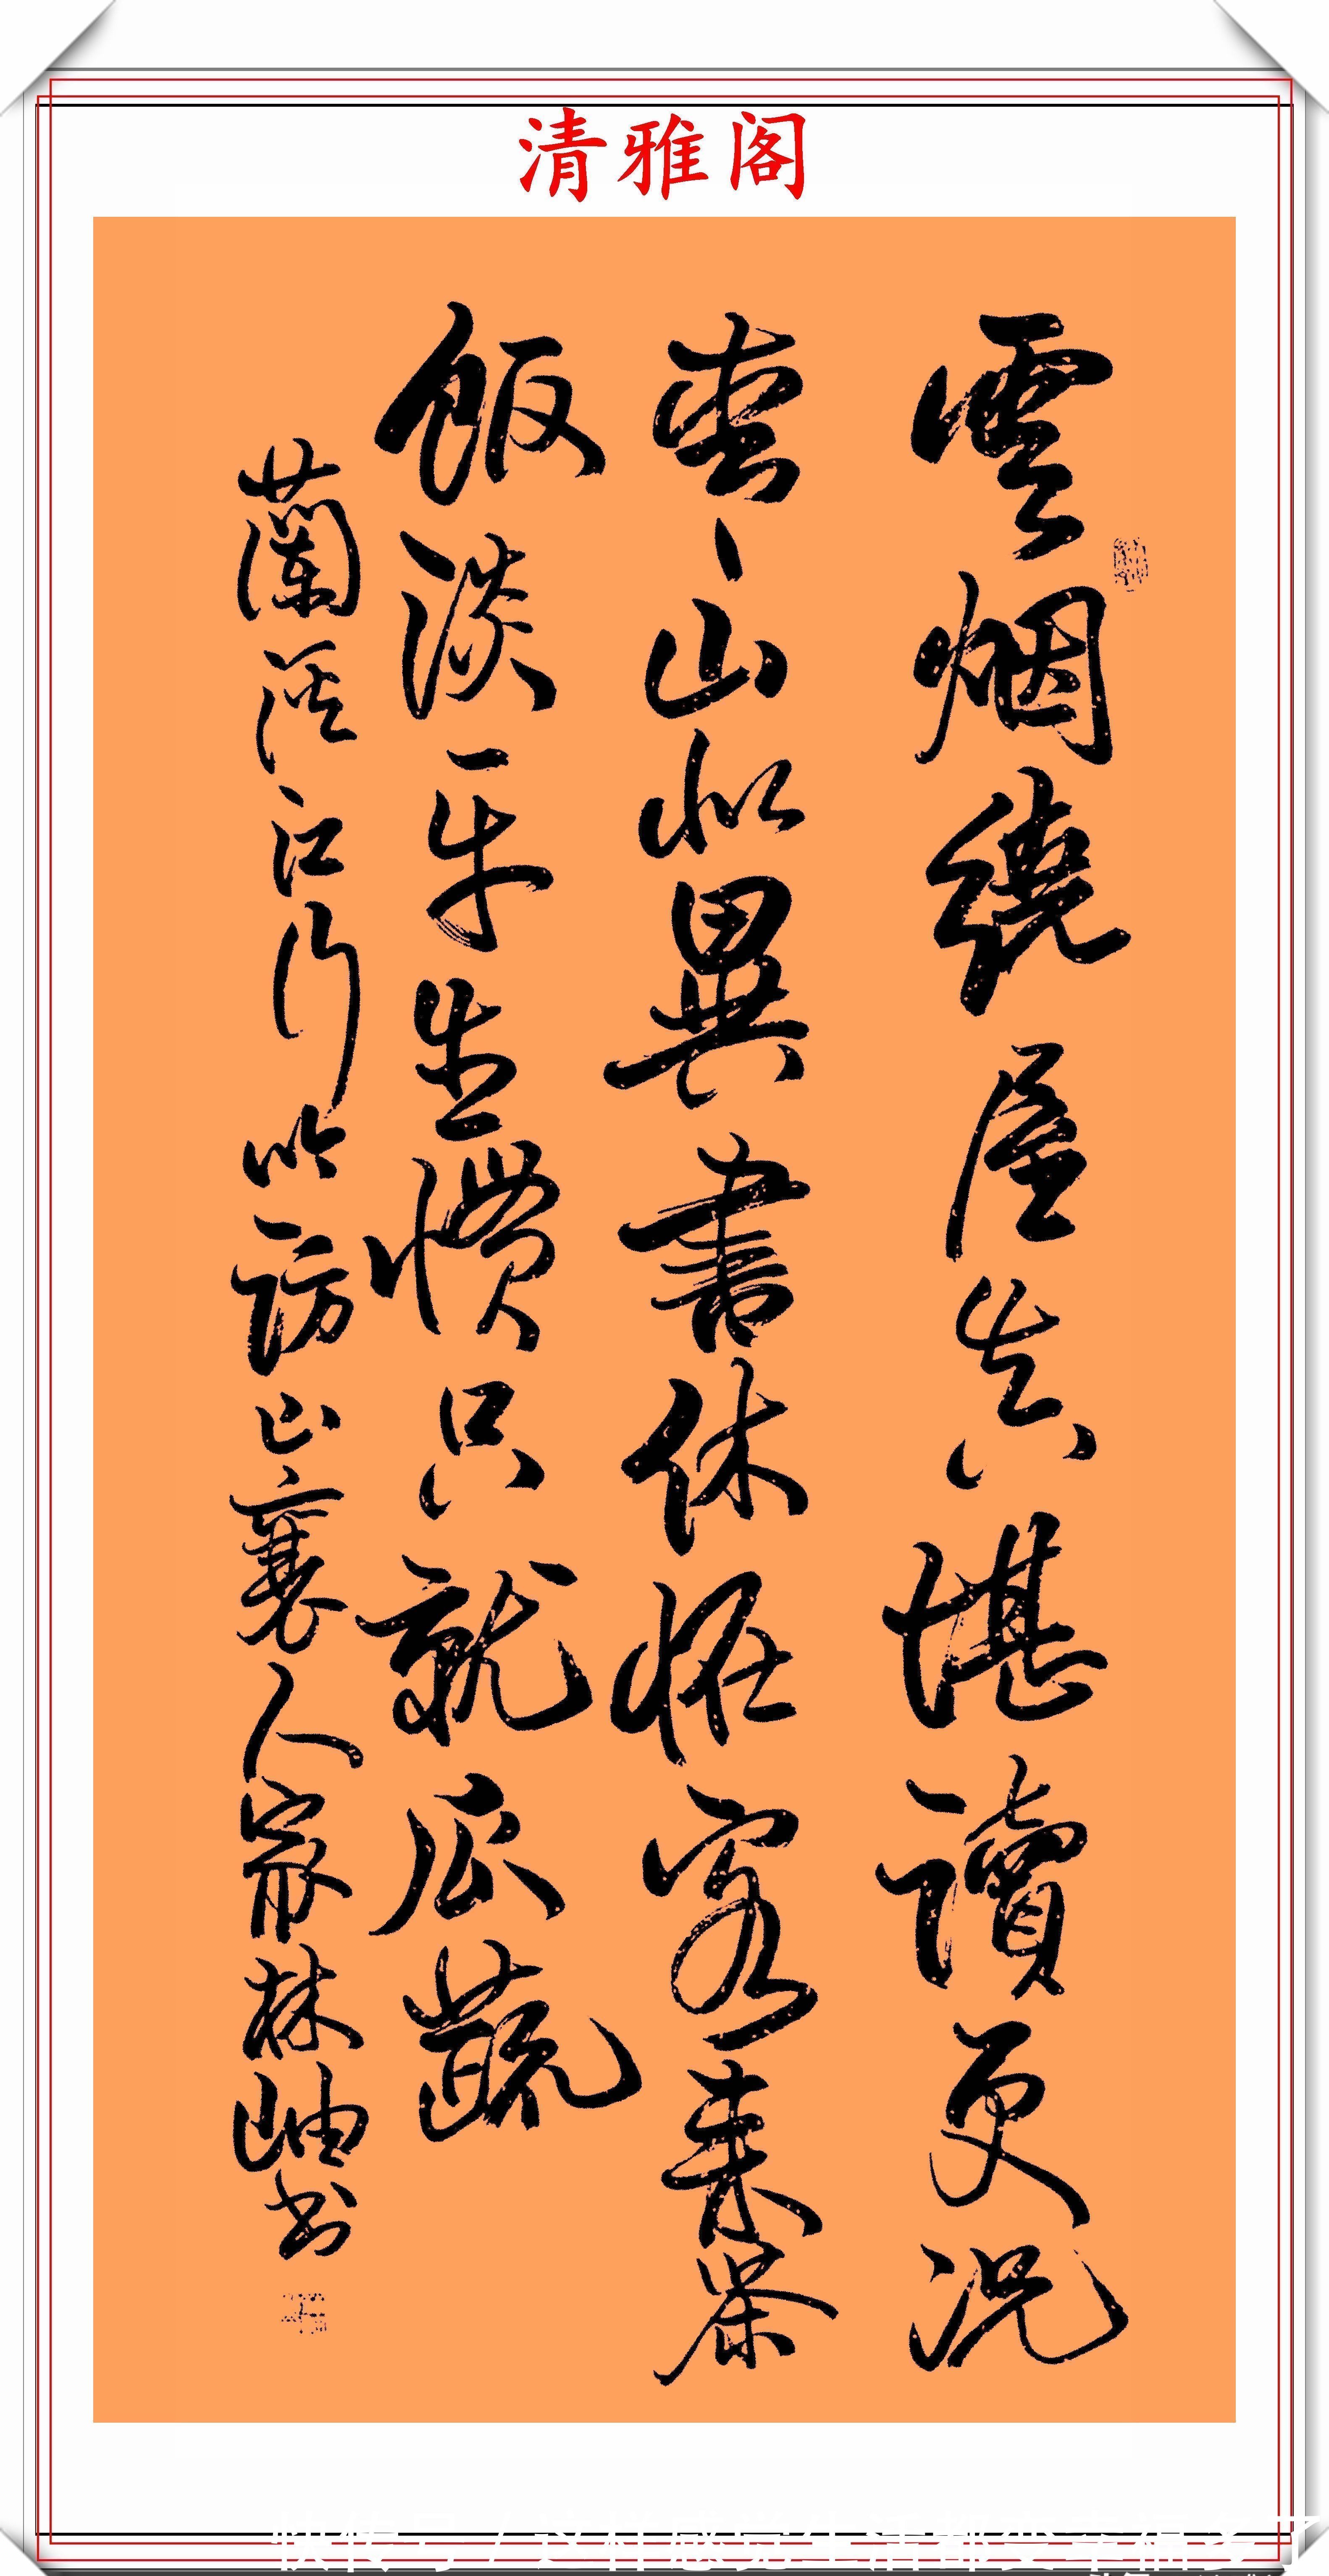 清雅阁
雲烟繞屋真堪讀更况
山似異書休怪客來茶
飯淡平生慣只就瓜蔬
蘭溪江行訪山裏人家林岫书